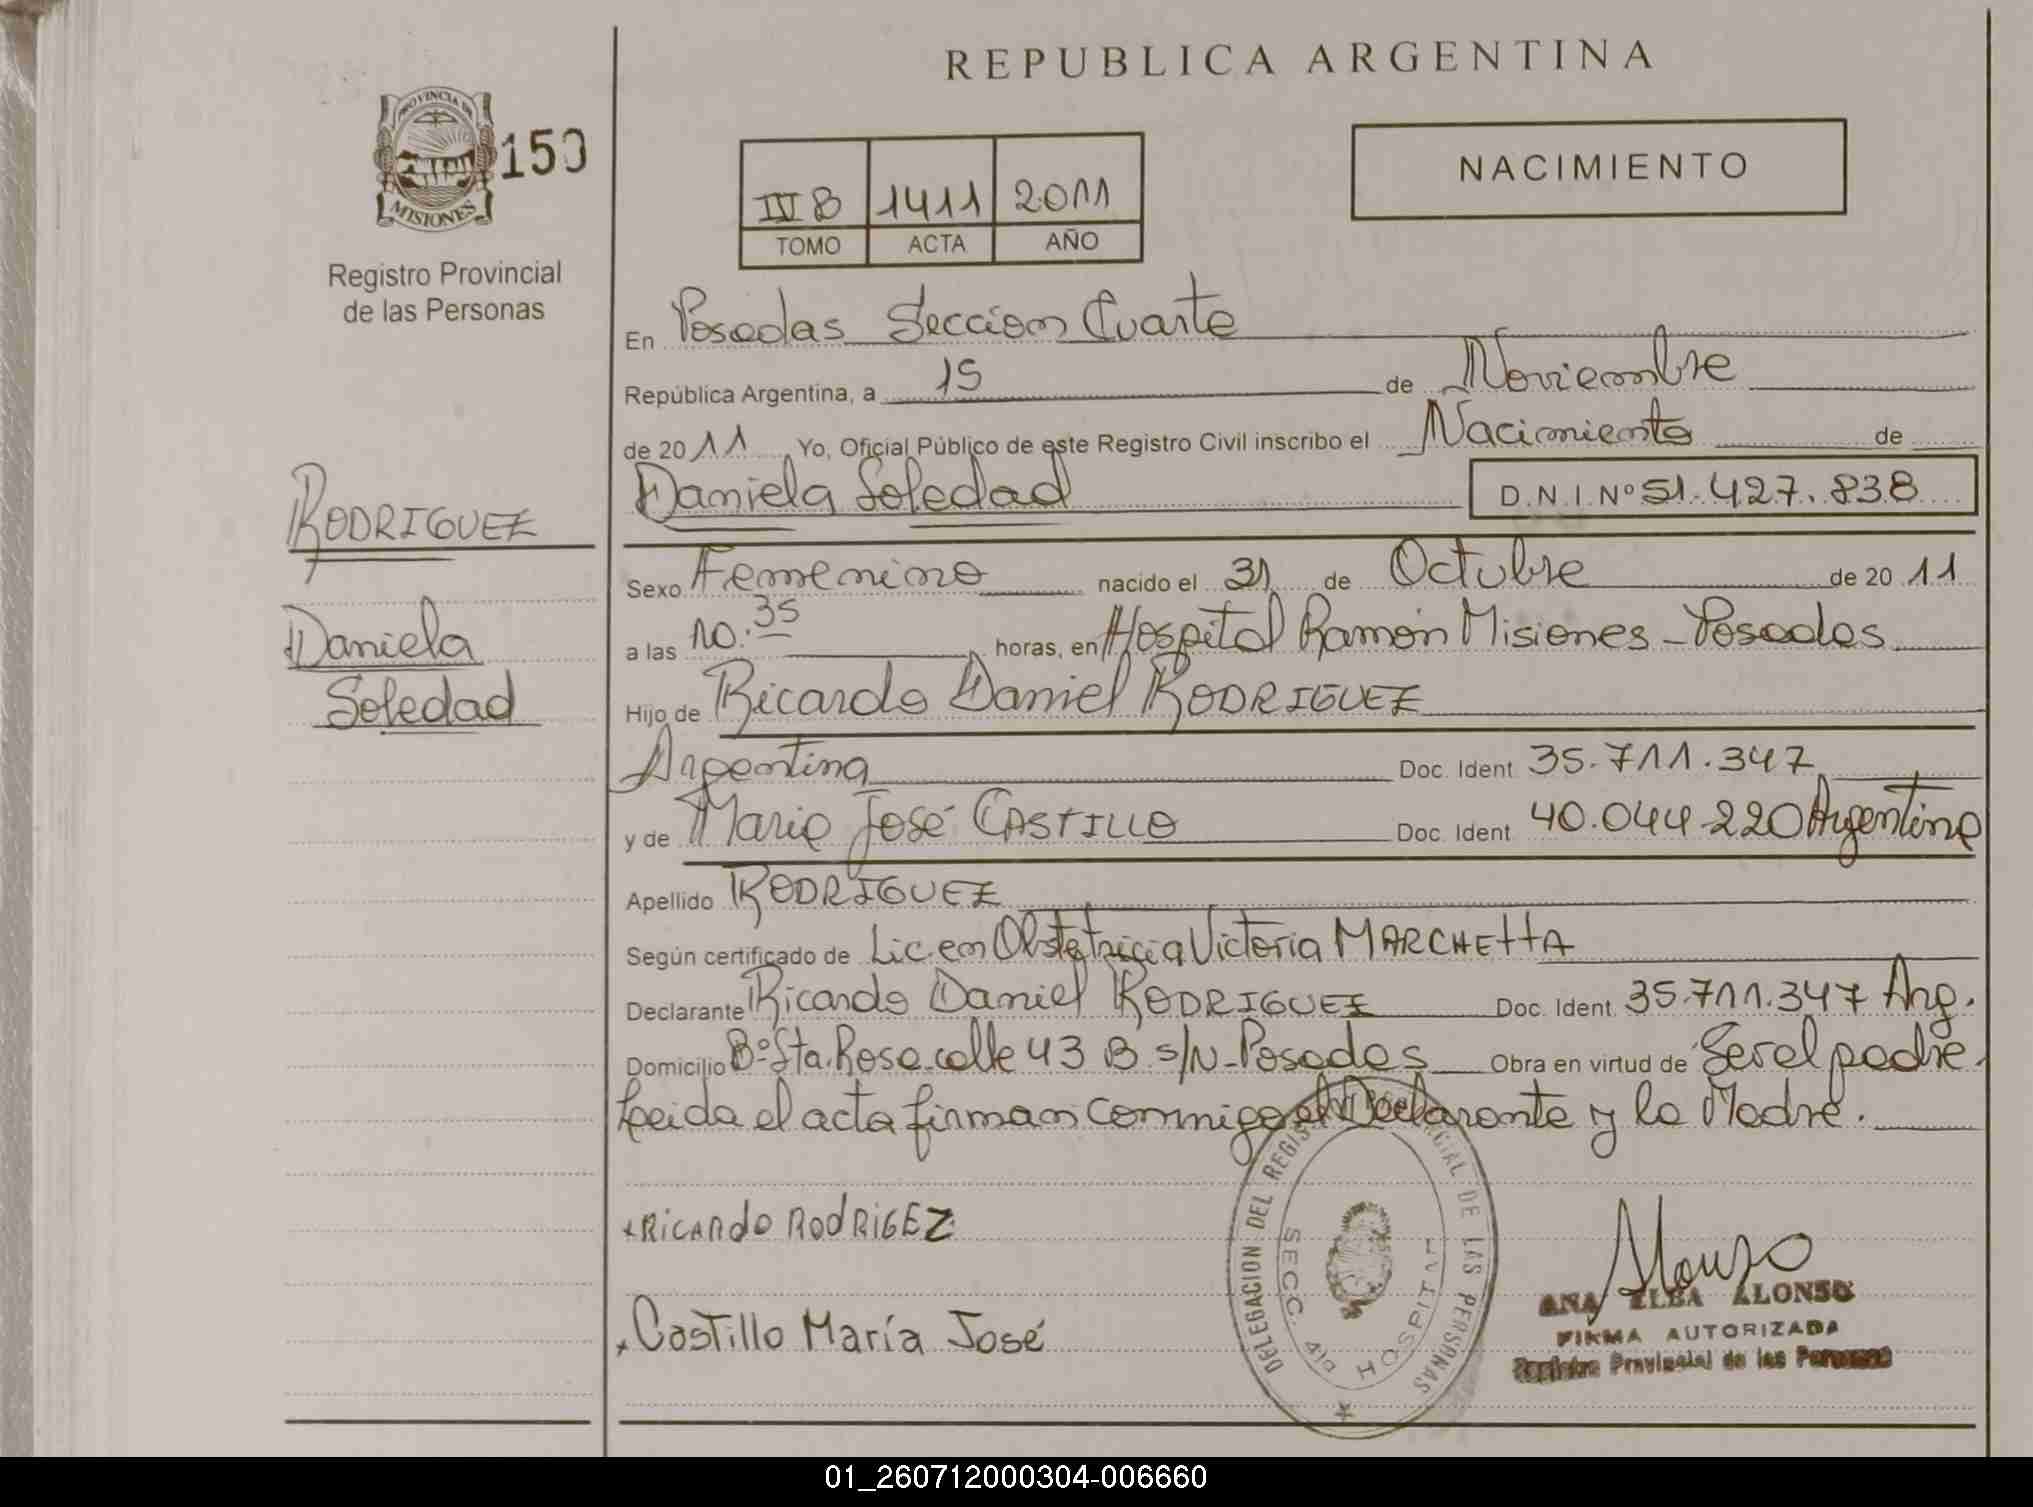 REPUBLICA ARGENTINA
PROVINCIA DE
MISIONES
150
Registro Provincial
de las Personas
IV B 1411 2011
TOMO ACTA AÑO
NACIMIENTO
En Posadas Seccion Cuarta
República Argentina, a 15 de Noviembre
de 2011 Yo, Oficial Público de este Registro Civil inscribo el Nacimiento de
Daniela Soledad D.N.I.Nº 51.427.838
RODRIGUEZ
Daniela
Soledad
Sexo Femenino nacido el 31 de Octubre de 2011
a las 10:35 horas, en Hospital Ramón Misiones - Posadas
Hijo de Ricardo Daniel RODRIGUEZ
Argentina Doc. Ident. 35.711.347
y de Maria José CASTILLO Doc. Ident. 40.044.220 Argentina
Apellido RODRIGUEZ
Según certificado de Lic. en Obstetricia Victoria MARCHETTA
Declarante Ricardo Daniel RODRIGUEZ Doc. Ident. 35.711.347 Arg.
Domicilio Bº Sta. Rosa calle 43 B s/N - Posadas Obra en virtud de Ser el padre.
Leida el acta firman conmigo el Declarante y la Madre.
+RICARDO RODRIGEZ
DELEGACION DEL REGISTRO PROVINCIAL DE LAS PERSONAS
SECC. 4ta HOSPITAL
Alonso
ANA ELBA ALONSO
FIRMA AUTORIZADA
Registro Provincial de las Personas
+Castillo María José
01_260712000304-006660